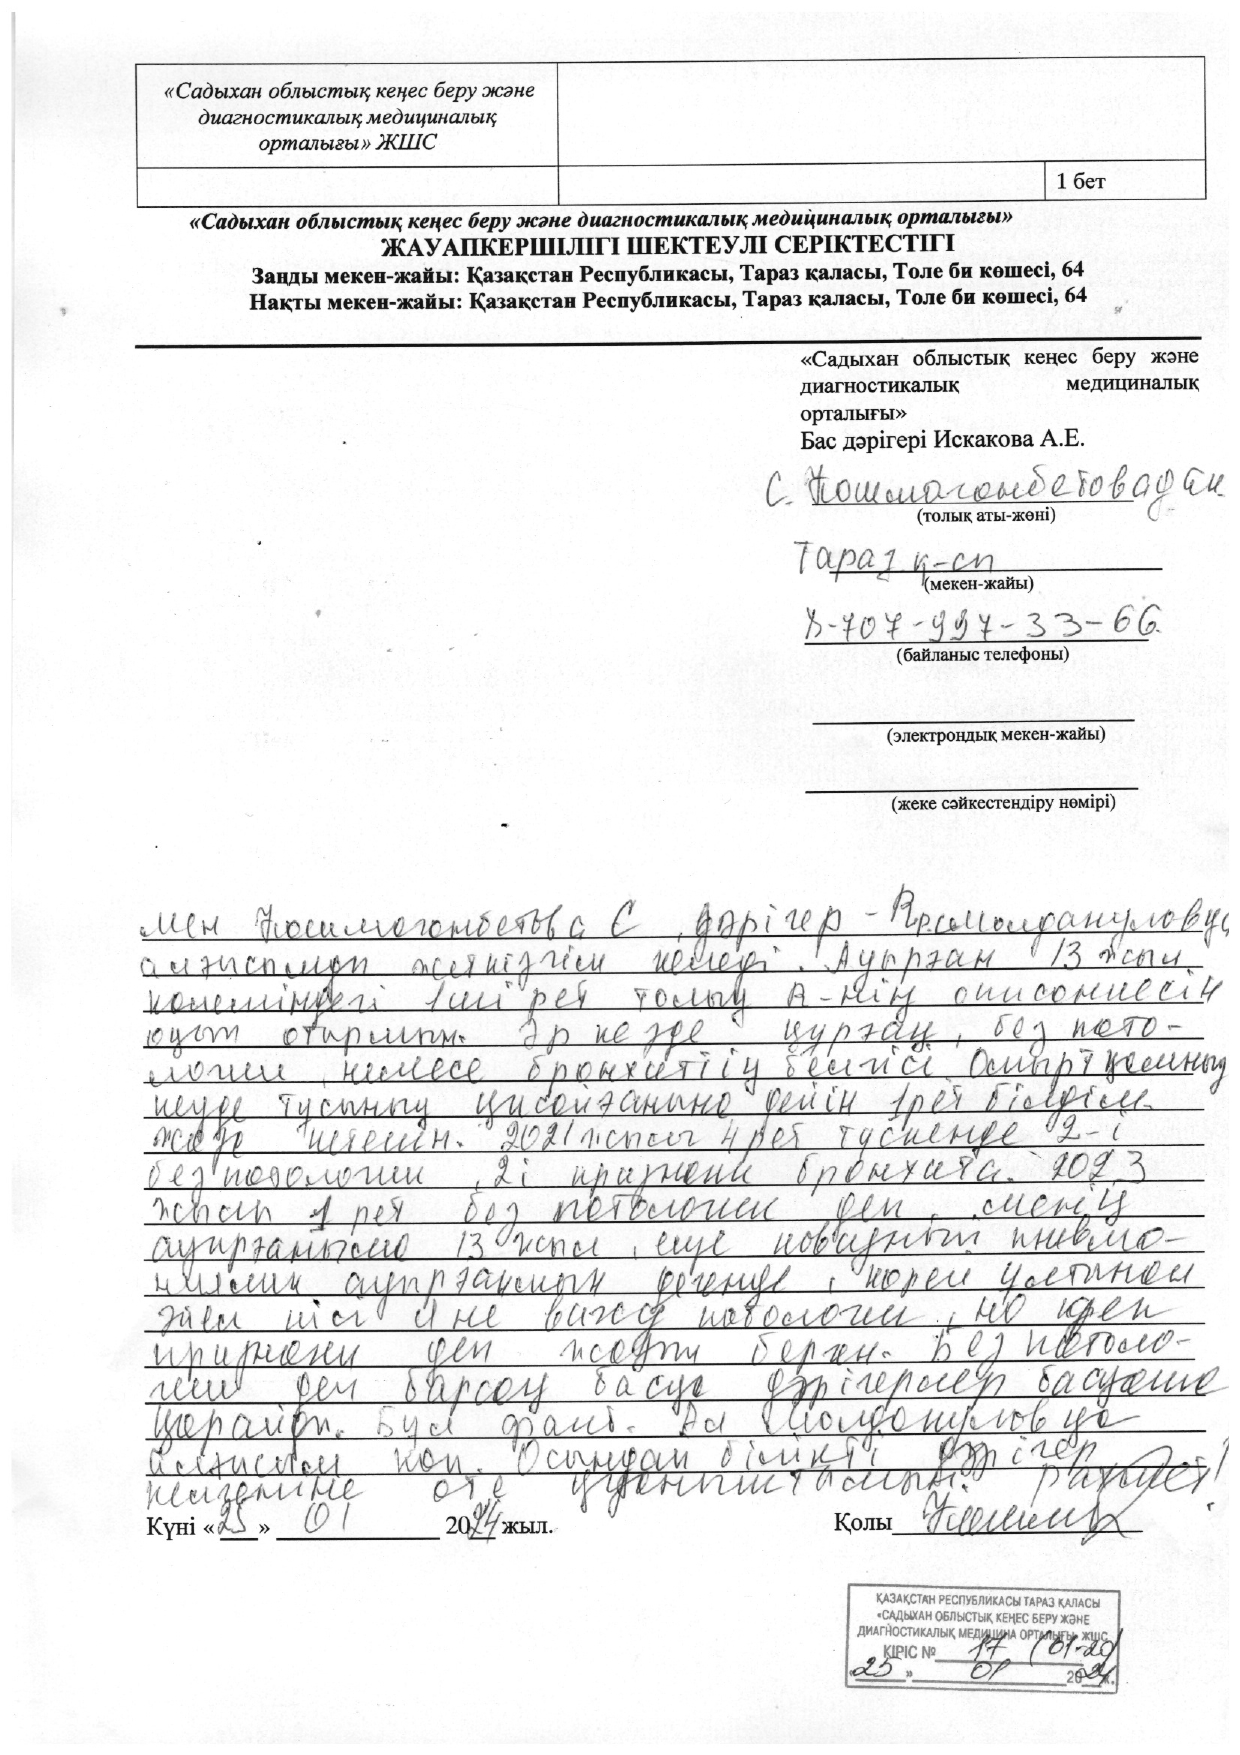 «Садыхан облыстық кеңес беру және
диагностикалық медициналық
орталығы» ЖШС
1 бет
«Садыхан облыстық кеңес беру және диагностикалық медициналық орталығы»
ЖАУАПКЕРШІЛІГІ ШЕКТЕУЛІ СЕРІКТЕСТІГІ
Заңды мекен-жайы: Қазақстан Республикасы, Тараз қаласы, Толе би көшесі, 64
Нақты мекен-жайы: Қазақстан Республикасы, Тараз қаласы, Толе би көшесі, 64
«Садыхан облыстық кеңес беру және
диагностикалық медициналық
орталығы»
Бас дәрігері Искакова А.Е.
С. Қошмағанбетовадан
(толық аты-жөні)
Тараз қ-сы
(мекен-жайы)
8-707-997-33-66
(байланыс телефоны)
(электрондық мекен-жайы)
(жеке сәйкестендіру нөмірі)
мен С дәрігер -
жеткізгім келеді. Ауырған 13 жыл
көлеміндегі 1ші рет толық R-нің описаниесін
оқып отырмын. Әр кезде құрғақ, без пато-
логии, немесе бронхиттің белгісі. Омыртқамның
кеуде тұсының қисайғанына дейін 1 рет білдім.
2021 жылы 4 рет түскенде 2-і
без патологии, 2і признаки бронхита. 2023
жылы 1 рет без патологии деп, менің
ауырғаныма 13 жыл, еще ковидный пневмо-
ниямен ауырғанмын дегенде, корей ұлтынан
әйел кісі я не вижу патологии, но
признаки деп жазып берген. Без патоло-
гии деп барлық басқа дәрігерлер басқаша
қарайды. Бұл факт. Ал Молданұловқа
алғысым көп. Осындай білікті дәрігер
келгеніне өте қуаныштымын. рахмет!
Күні «25» 01 2024 жыл.
Қолы
ҚАЗАҚСТАН РЕСПУБЛИКАСЫ ТАРАЗ ҚАЛАСЫ
«САДЫХАН ОБЛЫСТЫҚ КЕҢЕС БЕРУ ЖӘНЕ
ДИАГНОСТИКАЛЫҚ МЕДИЦИНА ОРТАЛЫҒЫ» ЖШС
КІРІС № 17 (01-20)
«25» 01 2024 ж.